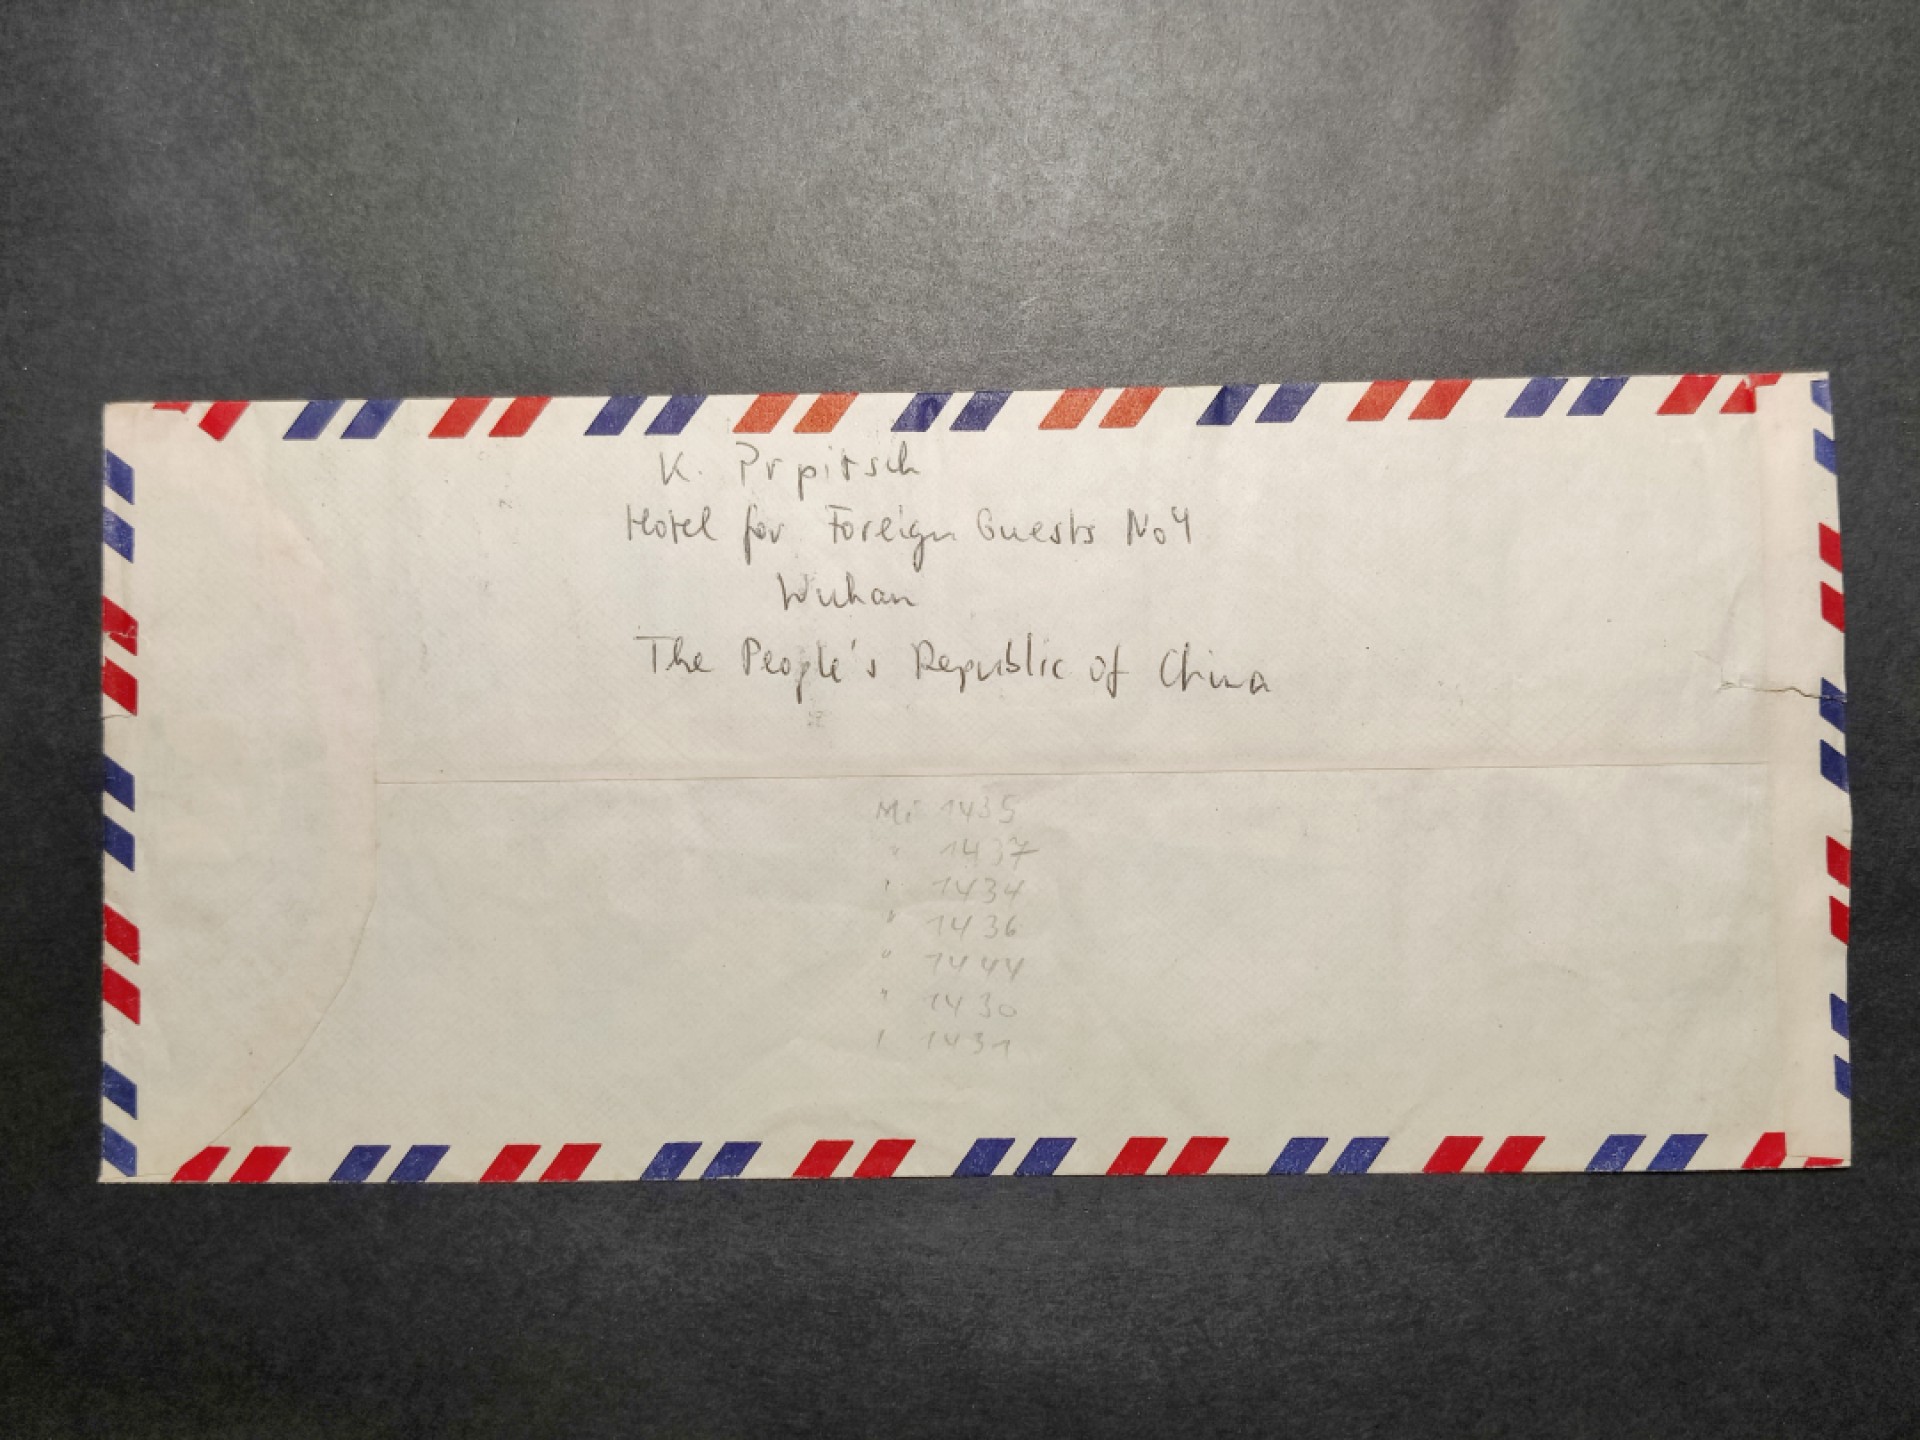 K. Prpitsch
Hotel for Foreign Guests No 4
Wuhan
The People's Republic of China
Mi 1435
" 1437
" 1434
" 1436
" 1444
" 1430
" 1431